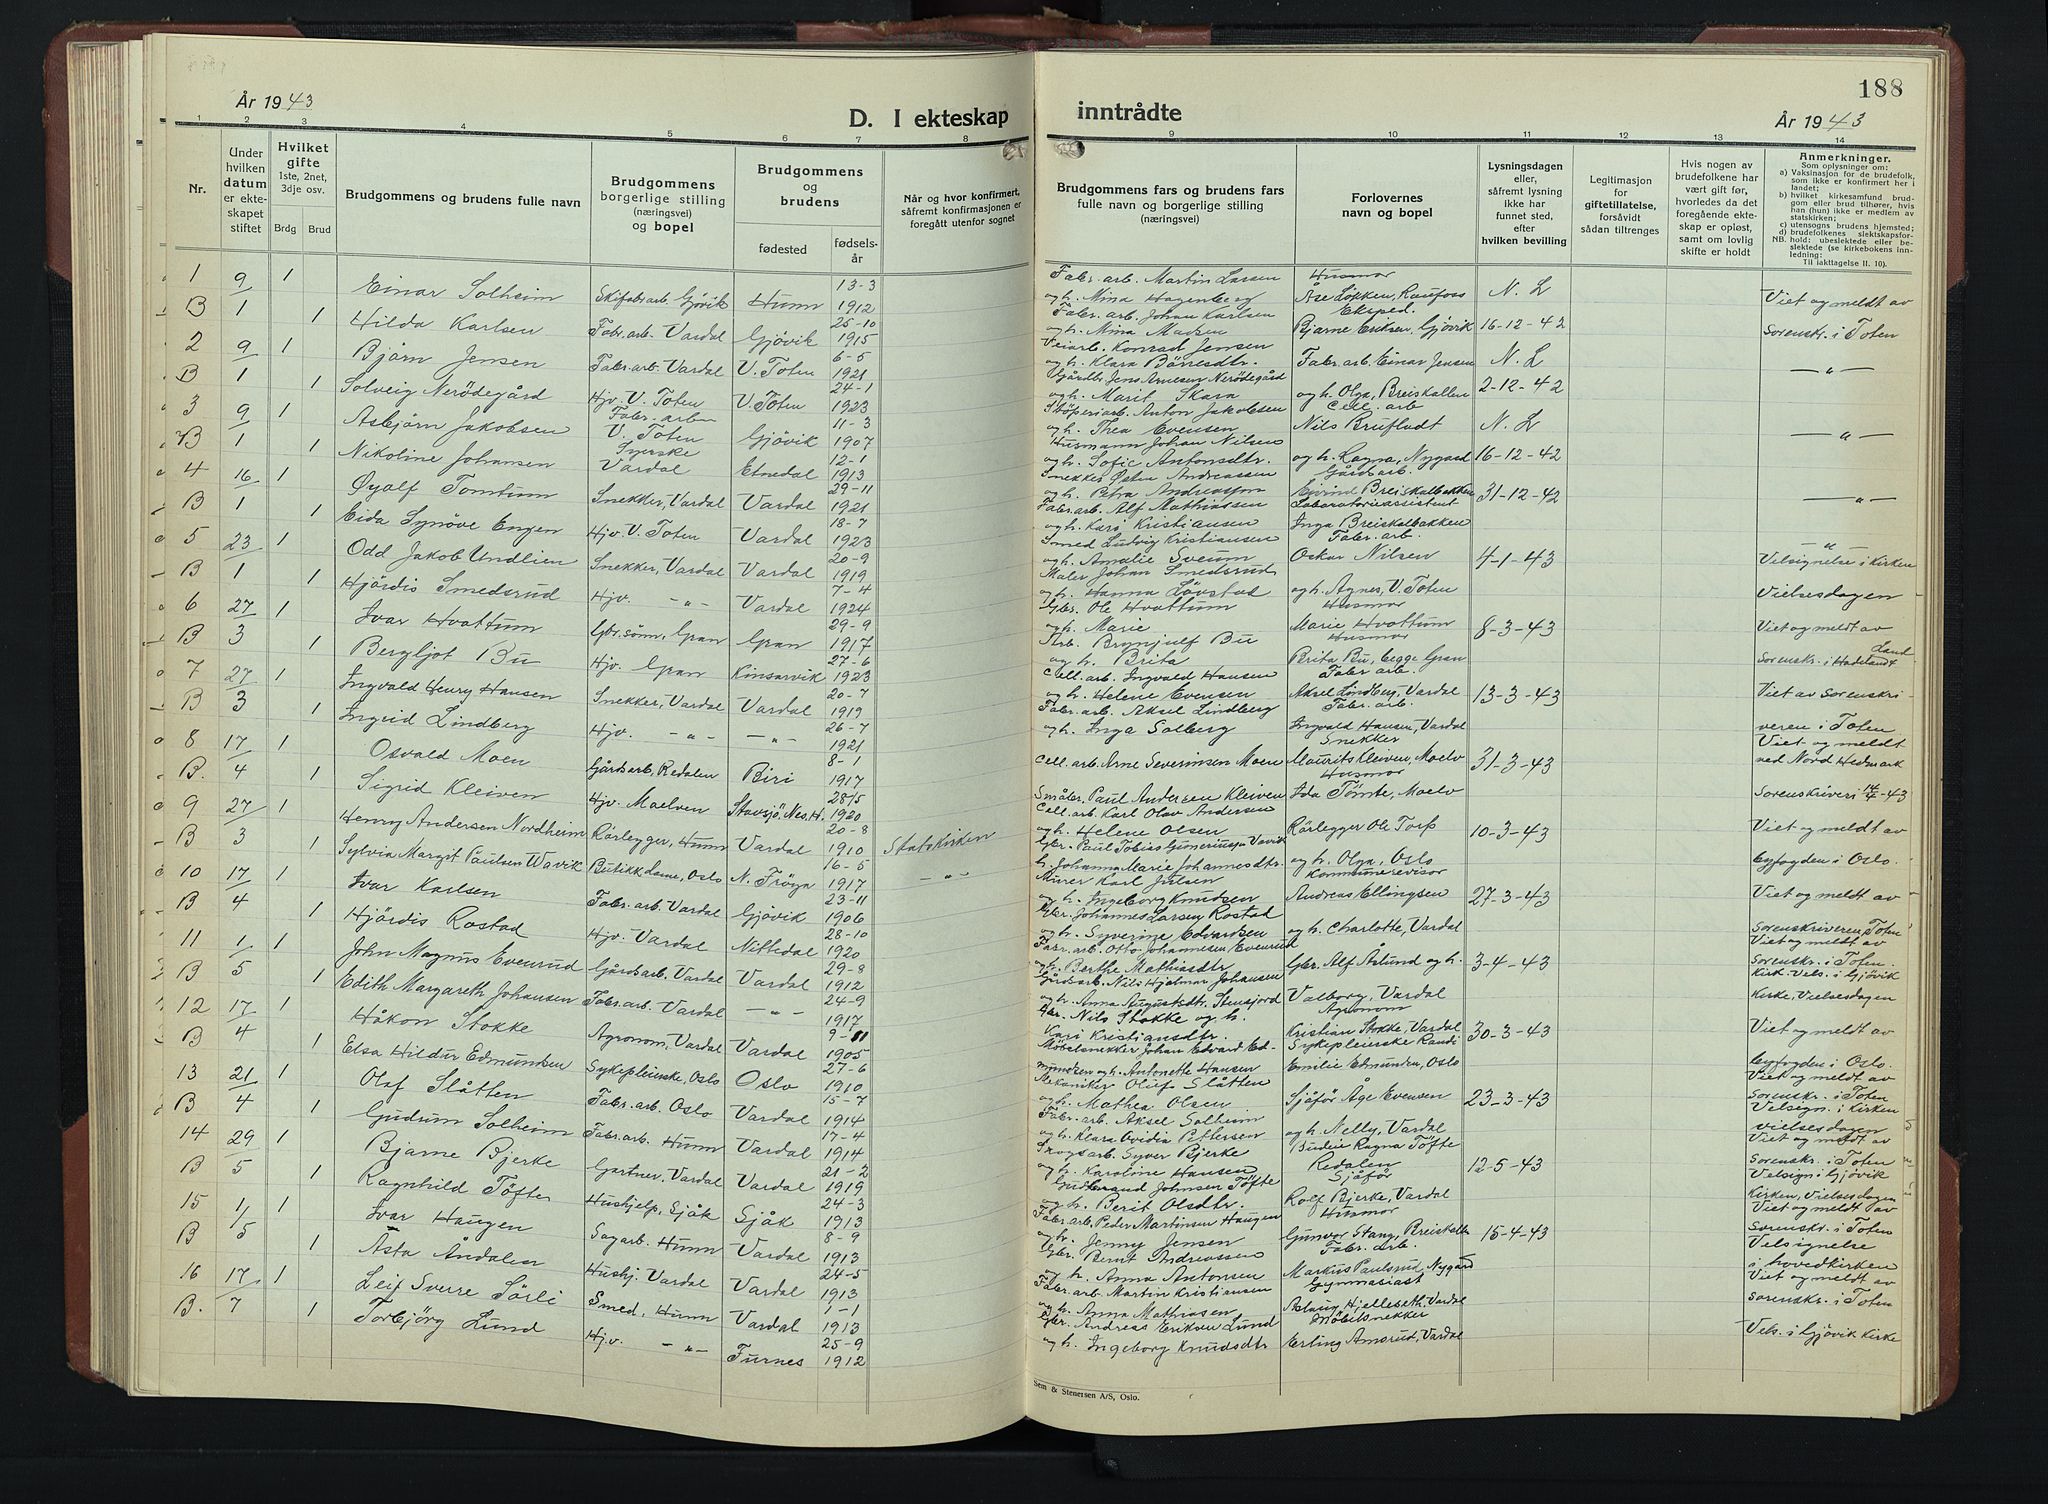 År 1943
D. I ekteskap
1 2 3 4 5 6 7 8
Nr.
Under hvilken datum er ekteskapet stiftet
Hvilket gifte 1ste, 2net, 3dje osv.
Brdg Brud
Brudgommens og brudens fulle navn
Brudgommens borgerlige stilling (næringsvei) og bopel
Brudgommens og brudens
fødested
fødsels-år
Når og hvor konfirmert, såfremt konfirmasjonen er foregått utenfor sognet
1 9 1 Einar Solheim Skifabr.arb. Gjøvik Hunn 13-3 1912
B 1 1 Hilda Karlsen Fabr.arb. Vardal Gjövik 25-10 1915
2 9 1 Bjørn Jensen Fabr.arb. Vardal V. Toten 6-5 1921
B 1 1 Solveig Nerödegård Hjv. V. Toten V. Toten 24-1 1923
3 9 1 Asbjörn Jakobsen Fabr.arb. V. Toten Gjövik 11-3 1907
B 1 1 Nikoline Johansen Syerske Vardal Etnedal 12-1 1913
4 16 1 Øyolf Tomtum Snekker, Vardal Vardal 29-11 1921
B 1 1 Eida Synöve Engen Hjv. V. Toten Vardal 18-7 1923
5 23 1 Odd Jakob Undlien Snekker, Vardal Vardal 20-9 1919
B 1 1 Hjördis Smedsrud Hjv. -„- Vardal 7-4 1924
6 27 1 Ivar Hvattum Gbr.sönn, Gran Gran 29-9 1917
B 3 1 Bergljot Bu Hjv. Gran Kinsarvik 27-6 1923
7 27 1 Ingvald Henry Hansen Snekker, Vardal Vardal 20-7 1919
B 3 1 Ingrid Lindberg Hjv. -„- -„- 26-7 1921
8 17 1 Osvald Moen Gårdsarb, Redalen Biri 8-1 1917
B. 4 1 Sigrid Kleiven Hjv. Maelven Stavsjö, Nes.H. 28/5 1920
9 27 1 Henry Andersen Nordheim Rörlegger, Hunn Vardal 20-8 1910 Statskirken
B 3 1 Sylvia Margit Paulsen Wavik Butikkdame, Oslo N. Fröya 16-5 1917 -„-
10 17 1 Ivar Karlsen Fabr.arb. Vardal Gjövik 23-11 1906
B 4 1 Hjördis Rostad Hjv. Vardal Nittedal 28-10 1920
11 1 1 John Magnus Evenrud Gårdsarb. Vardal Vardal 29-8 1912
B 5 1 Edith Margareth Johansen Fabr.arb. Vardal -„- 24-9 1917
12 17 1 Håkon Stokke Agronom, Vardal Vardal 9-11 1905
B 4 1 Elsa Hildur Edmundsen Sykepleierske, Oslo Oslo 27-6 1910
13 21 1 Olaf Slåtten Fabr.arb. Oslo Vardal 15-7 1914
B 4 1 Gudrun Solheim Fabr.arb. Hunn Vardal 17-4 1914
14 29 1 Bjarne Bjerke Gartner, Vardal Vardal 21-2 1919
B 5 1 Ragnhild Töfte Hushjelp, Sjåk Sjåk 24-3 1913
15 1 1 Ivar Haugen Sagarb. Hunn Vardal 8-9 1913
B 5 1 Asta Åndalen Hushj. Vardal Vardal 24-5 1913
16 17 1 Leif Sverre Sörli Smed, Hunn Vardal 1-1 1913
B. 7 1 Torbjörg Lund Hjv. -„- Furnes 25-9 1912
188
inntrådte
År 1943
9 10 11 12 13 14
Brudgommens fars og brudens fars fulle navn og borgerlige stilling (næringsvei)
Forlovernes navn og bopel
Lysningsdagen eller, såfremt lysning ikke har funnet sted, efter hvilken bevilling
Legitimasjon for giftetillatelse, forsåvidt sådan tiltrenges
Hvis nogen av brudefolkene har vært gift før, hvorledes da det foregående ekteskap er opløst, samt om lovlig skifte er holdt
Anmerkninger.
Som oplysninger om:
a) Vaksinasjon for de brudefolk, som ikke er konfirmert her i landet;
b) hvilket kirkesamfund brudgom eller brud tilhører, hvis han (hun) ikke er medlem av statskirken;
c) utensogns brudens hjemsted;
d) brudefolkenes slektskapsforhold: ubeslektede eller beslektede (se kirkebokens innledning:
NB.
Til iakttagelse II. 10).
Fabr.arb. Martin Larsen Husmor
og h. Mina Hagenberg Åse Løkken, Raufoss N. L Viet og meldt av
Fabr.arb. Johan Karlsen Eksped.
og h. Nina Madsen Bjarne Eriksen, Gjövik 16-12-42 Sorenskr. i Toten
Veiarb. Konrad Jensen
og h. Klara Börresdtr. Fabr.arb Einar Jensen N. L -„-
Gårdbr. Jens Arnesen Nerödegård
og h. Marit Skara og h. Olga, Breiskallen 2-12-42
Støperiarb. Anton Jakobsen Cell. arb
og h. Thea Evensen Nils Brufladt N. L -„-
Husmann Johan Nilsen
og h. Sofie Antonsdtr. og h. Ragna, Nygard 16-12-42
Snekker Østen Andreassen Gårdsarb.
og h. Petra Andreassen Eivind Breiskalbakken 31-12-42 -„-
Fabr.arb. Alf Mathiassen Laboratorieassistent
og h. Kari Kristiansen Inga Breiskalbakken
Smed Ludvig Kristiansen Fabr. arb.
og h. Amalie Sveum Oskar Nilsen 4-1-43 -„- Velsignelse i Kirken
Maler Johan Smedsrud
og h. Hanna Lövstad og h. Agnes, V. Toten Vielsesdagen
Gbr. Ole Hvattum Husmor
og h. Marie Marie Hvattum 8-3-43 Viet og meldt av
Brynjulf Bu Husmor
og h. Brita Brita Bu, Gran Sorenskr. i Hadeland Land
Cell. arb. Ingvald Hansen Fabr arb.
og h. Helene Evensen Aksel Lindberg, Vardal 13-3-43 Viet av sorenskri-
Fabr.arb. Aksel Lindberg Fabr. arb.
og h. Inga Solberg Ingvald Hansen, Vardal veren i Toten
Snekker Viet og meldt
Cell. arb. Arne Severinsen Moen Maurits Kleiven, Moelv 31-3-43 ved Nord Hedmark
Husmor
Småbr. Paul Andersen Kleiven Ida Tömte, Moelv Sorenskriveri 17/4-43
Cell. arb. Karl Olav Andersen
og h. Helene Olsen Rörlegger Ole Torp 10-3-43 Viet og meldt av
Gbr. Paul Tobias Gunerius Vavik
h. Johanna Marie Johannesdtr. og h. Olga, Oslo byfogden i Oslo.
Murer Karl Julsen Kommunerevisor
og h. Ingeborg Knudsen Andreas Ellingsen 27-3-43 Viet og meldt av
Gbr. Johannes Larsen Rostad
og h. Syverine Edvardsen og h. Charlotte, Vardal Sorenskriveren, Toten
Fabr.arb. Otto Johannesen Evenrud Viet og meldt av
og h. Berthe Mathiasdtr. Gbr. Alf Åslund og h. 3-4-43 Sorenskr. i Toten.
Gårdsarb. Nils Hjelmar Johansen Kirk. Vels. i Gjövik
og h. Anna Augustsdtr. Stensjord Valborg, Vardal Kirke, Vielsesdagen
Gbr. Nils Stokke og h. Agronom
Kari Kristiansdtr. Kristian Stokke, Vardal 30-3-43 Viet og meldt av
Möbelsnekker Johan Edvard Ed- Sykepleierske Randi
mundsen og h. Antonette Hansen Emilie Edmundsen, Oslo byfogden i Oslo.
Mekaniker Oluf Slåtten Viet og meldt av
og h. Mathea Olsen Sjåför Åge Evensen 23-3-43 Sorenskr. i Toten
Fabr.arb. Aksel Solheim Velsign. i Kirken
og h. Klara Ovidia Pettersen og h. Nelly, Vardal vielsesdagen
Skogsarb. Syver Bjerke Budeie Ragna Töfte Viet og meldt av
og h. Karoline Hansen Redalen 12-5-43 Sorenskr. i Toten
Gudbrand Johnsen Töfte Sjåför Velsign. i Gjövik
og h. Berit Olsdtr. Rolf Bjerke, Vardal Kirken, Vielsesdagen
Fabr.arb. Peder Martinsen Haugen Husmor Viet og meldt av
og h. Jenny Jensen Gunvor Stang, Breiskallen 15-4-43 Sorenskr. i Toten
Gbr. Bernt Andreassen Fabr. arb. Velsignelse
og h. Anna Antonsen Markus Paulsrud, Nygård i hovedkirken
Fabr.arb. Martin Kristiansen Gymnasiast Viet og meldt av
og h. Anna Mathiasen Aslaug Hjelleseth, Vardal Sorenskr. i Toten
Gbr. Andreas Eriksen Lund Möbelsnekker
og h. Ingeborg Knudsdtr Erling Amsrud, Vardal Vels. i Gjövik Kirke
Sem & Stenersen A/S, Oslo.